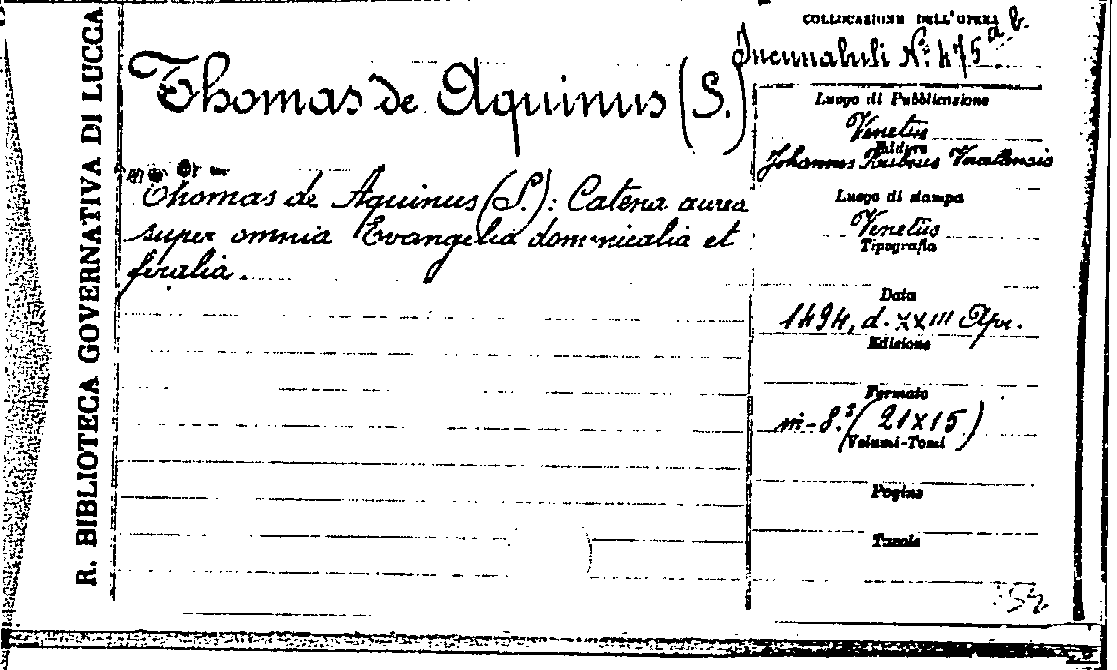 R. BIBLIOTECA GOVERNATIVA DI LUCCA
Thomas de Aquinus (S.)
Thomas de Aquinus (S.): Catena aurea
super omnia Evangelia dominicalia et
feralia.
COLLOCAZIONE DELL'OPERA
Incunabuli N.º 475 a b.
Luogo di Pubblicazione
Venetiis
Editore
Johannes Rubeus
Luogo di stampa
Venetiis
Tipografia
Data
1494, d. XXIII Apr.
Edizione
Formato
in-8.º (21x15)
Volumi-Tomi
Pagine
Tavole